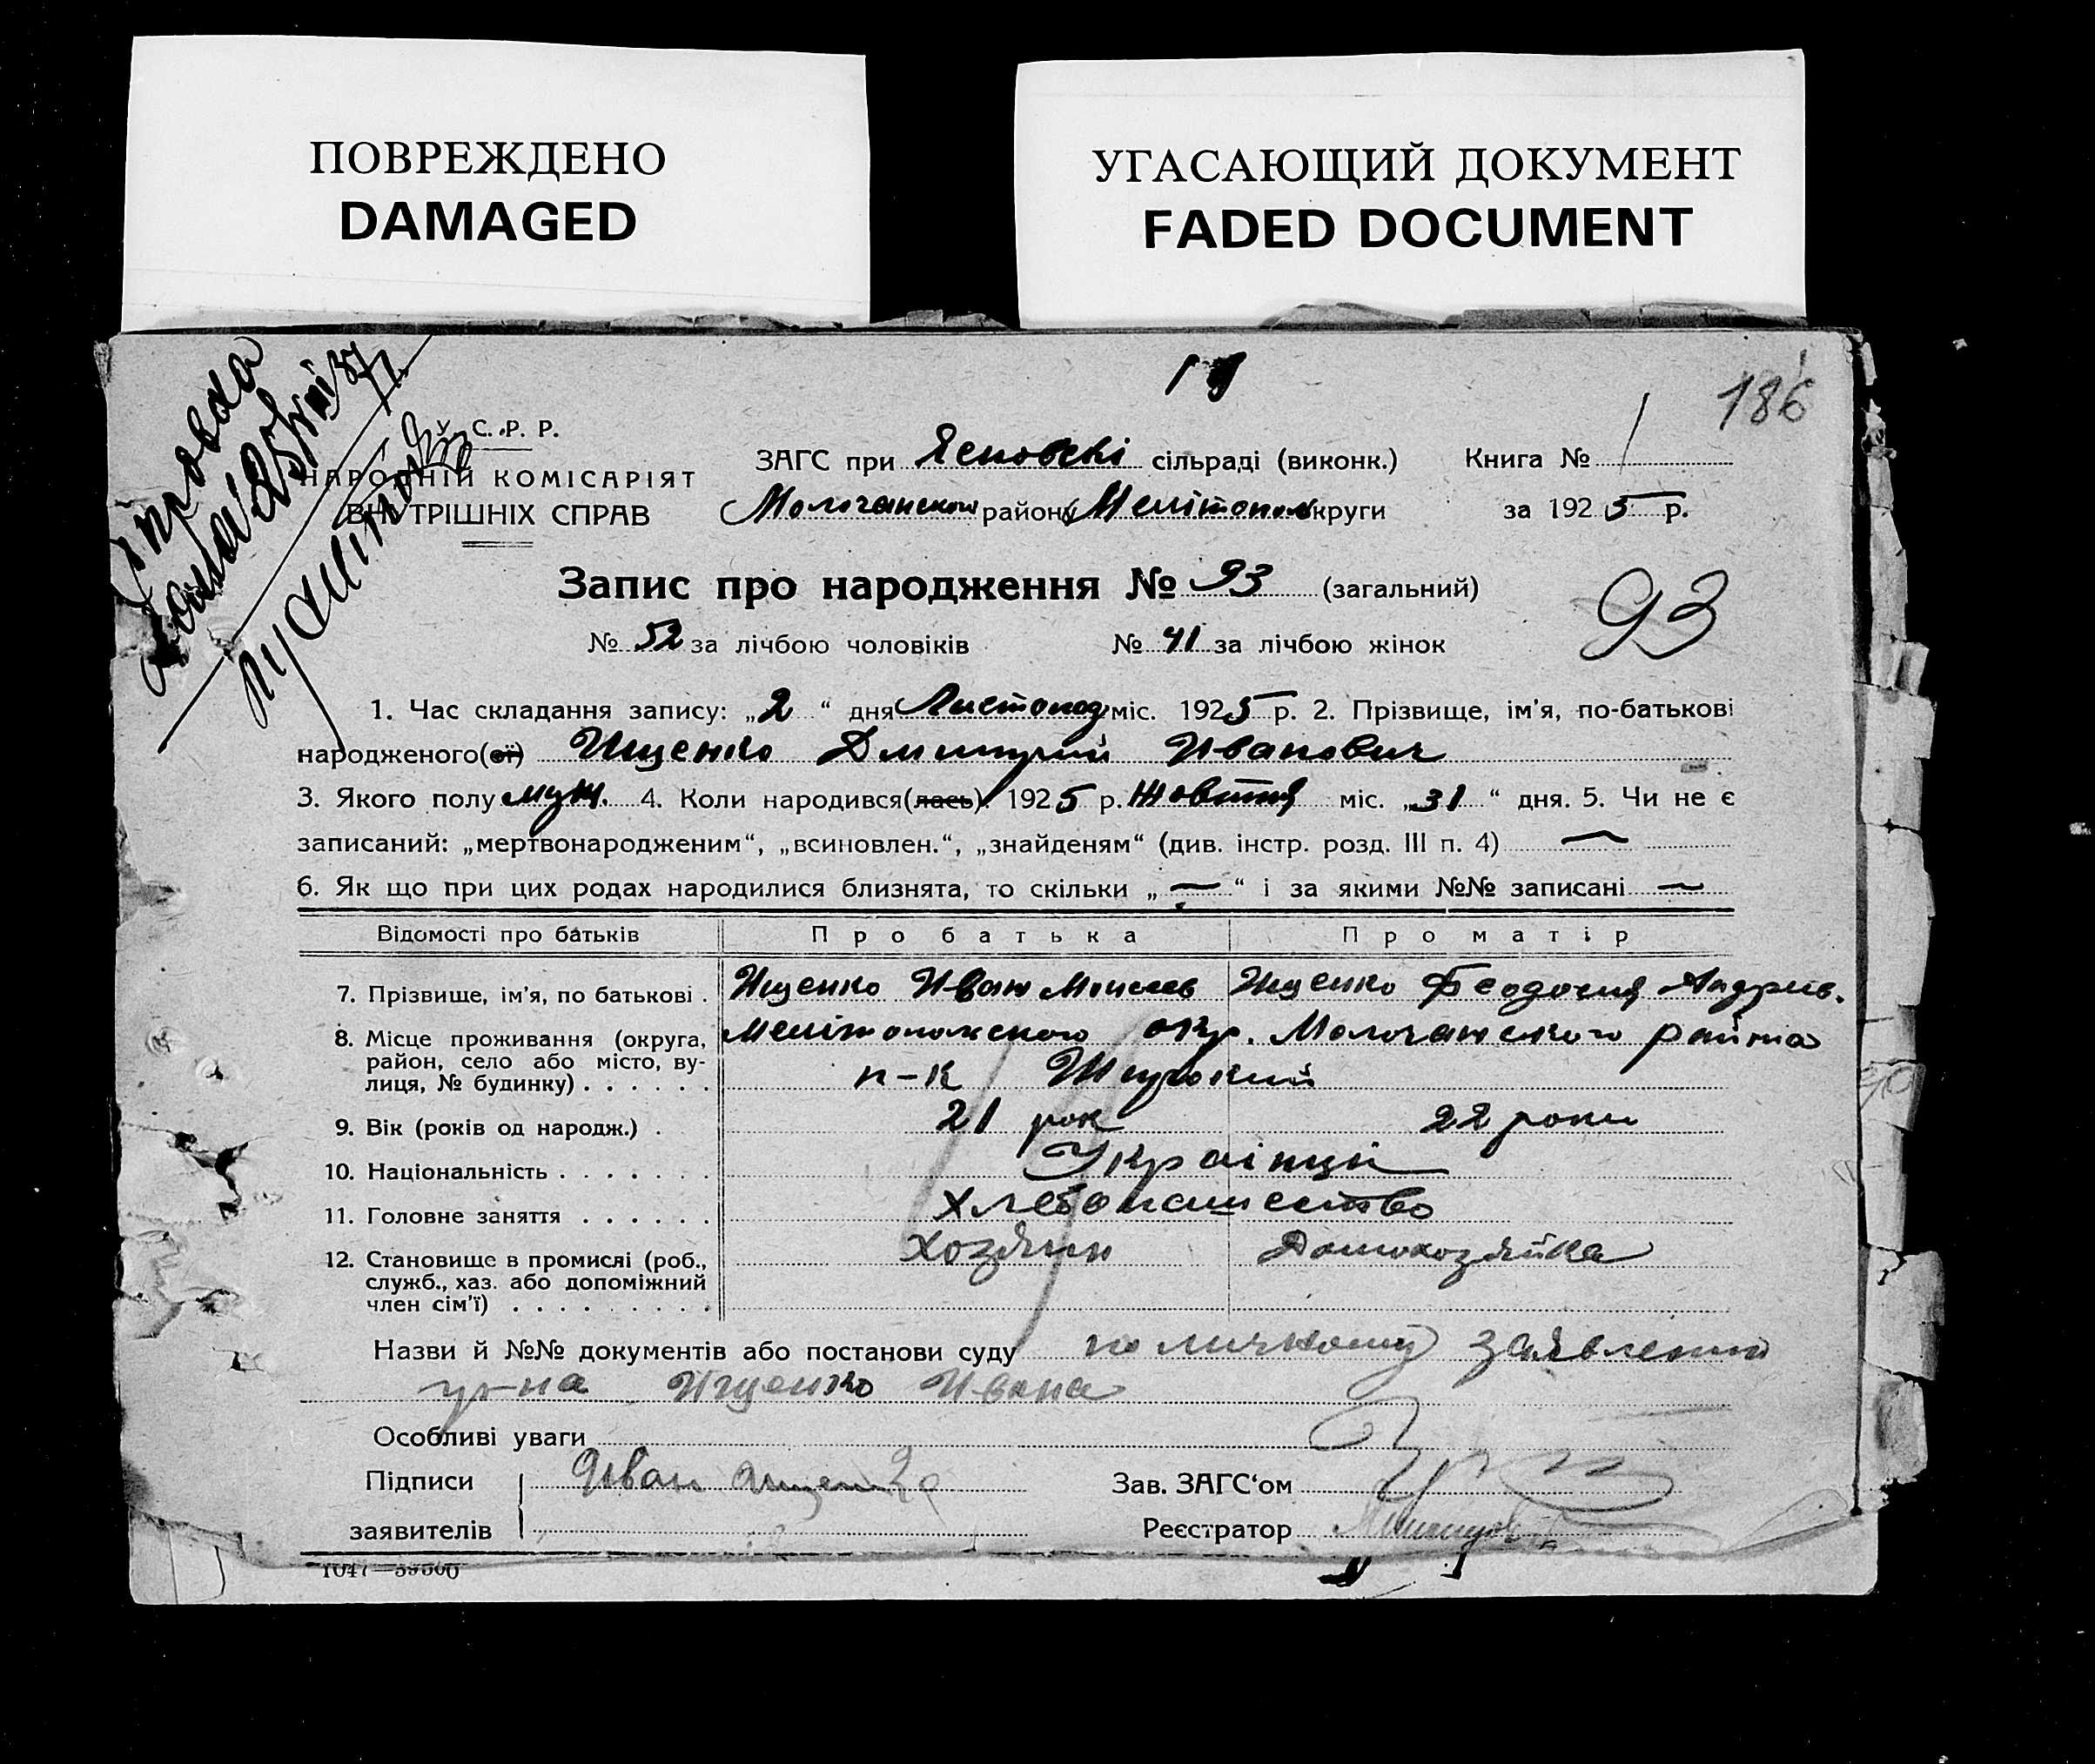 ПОВРЕЖДЕНО
DAMAGED
УГАСАЮЩИЙ ДОКУМЕНТ
FADED DOCUMENT
186
У. С. Р. Р.
НАРОДНІЙ КОМІСАРІЯТ
ВНУТРІШНІХ СПРАВ
ЗАГС при сільраді (виконк.) Книга № 1
Молочанськ району Мелітопол округи за 1925 р.
Запис про народження № 93 (загальний)
93
№ 52 за лічбою чоловіків № 41 за лічбою жінок
1. Час складання запису: „2“ дня Листопад міс. 1925 р. 2. Прізвище, ім'я, по-батькові
народженого(ої) Ищенко Дмитрий Иванович
3. Якого полу муж. 4. Коли народився(лась) 1925 р. Жовтня міс. „31“ дня. 5. Чи не є
записаний: „мертвонародженим“, „всиновлен.“, „знайденям“ (див. інстр. розд. III п. 4) —
6. Як що при цих родах народилися близнята, то скільки „—“ і за якими №№ записані —
Відомості про батьків Про батька Про матір
7. Прізвище, ім'я, по батькові . Ищенко Иван Моисеев Ищенко Феодосия Андриев.
8. Місце проживання (округа, Мелітопольского окр. Молочанского района
район, село або місто, ву-
лиця, № будинку) . . . . . . п-к Широкий
9. Вік (років од народж.) . 21 рок 22 роки
10. Національність . . . . . . . Українці
11. Головне заняття . . . . . . Хлебопашество
12. Становище в промислі (роб., Хозяин Домохозяйка
служб., хаз. або допоміжний
член сім'ї) . . . . . . . . .
Назви й №№ документів або постанови суду по личному заявлению
гр-на Ищенко Ивана
Особливі уваги
Підписи Иван Ищенко Зав. ЗАГС'ом
заявителів Реєстратор
1047—39500